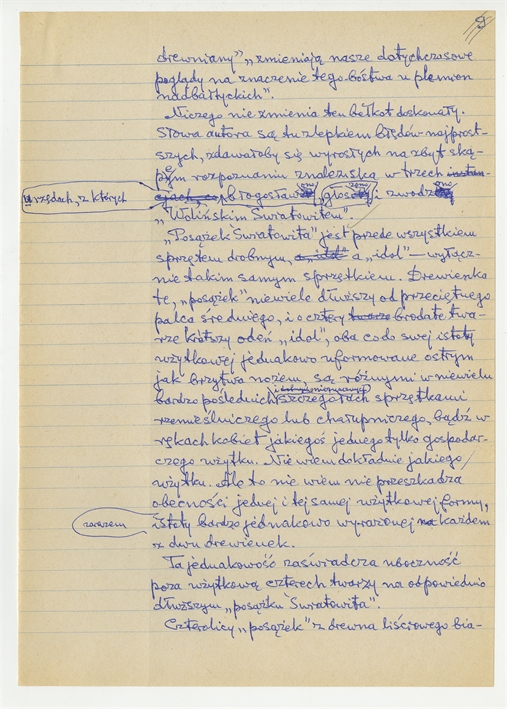 9
drewniany" „zmieniają nasze dotychczasowe
poglądy na znaczenie tego bóstwa u plemion
nadbałtyckich".
Niczego nie zmienia ten bełkot doskonały.
Słowa autora są tu zlepkiem błędów najprost-
szych, zdawałoby się wyrosłych na zbyt ską-
pym rozpoznaniu znaleziska w trzech
urzędach, z których błogosławiono, głoszono i zwodzono
„Wolińskim Światowitem".
„Posążek Światowita" jest przede wszystkiem
sprzętem drobnym, a „idol" — wyłącz-
nie takim samym sprzętkiem. Drewienka
te, „posążek" niewiele dłuższy od przeciętnego
palca średniego, i o cztery twarze brodate twa-
rze krótszy odeń „idol", oba co do swej istoty
użytkowej jednakowo uformowane ostrym
jak brzytwa nożem, są różnymi w niewielu
bardzo poślednich i szczegółach sprzętkami
rzemieślniczego lub chałupniczego, bądź w
rękach kobiet jakiegoś jednego tylko gospodar-
czego użytku. Nie wiem dokładnie jakiego
użytku. Ale to nie wiem nie przeszkadza
obecności jednej i tej samej użytkowej formy,
zarazem istoty bardzo jednakowo wyrażonej na każdem
z dwu drewienek.
Ta jednakowość zaświadcza uboczność
poza użytkową czterech twarzy na odpowiednio
dłuższym „posążku Światowita".
Czterolicy „posążek" z drewna liściowego bia-